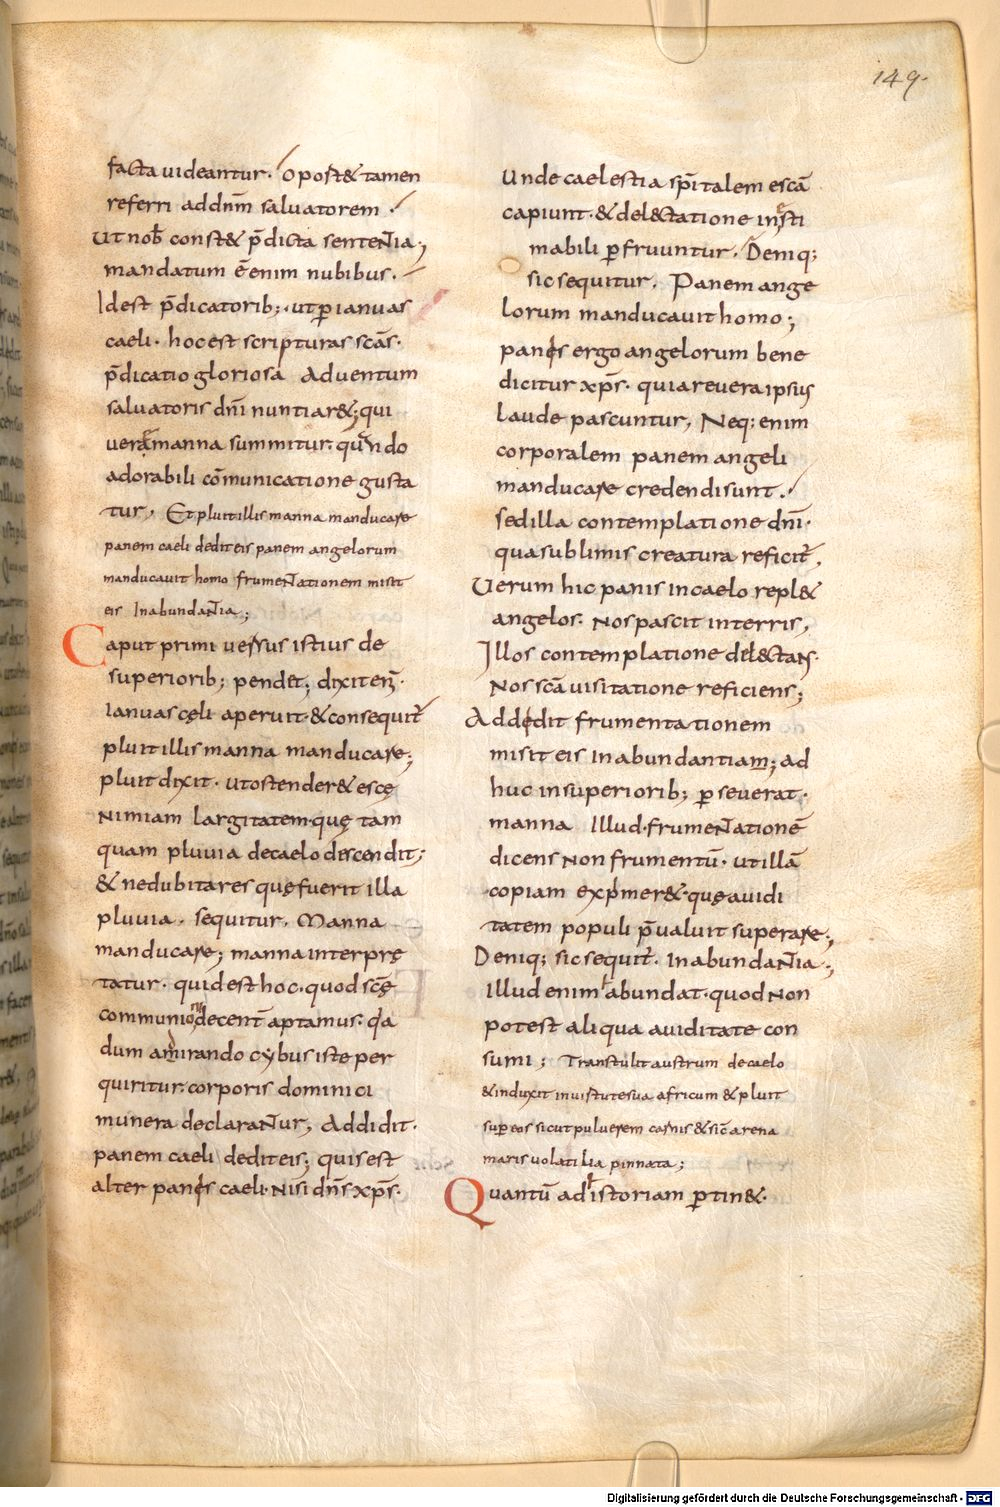 149.
facta uideantur. Oportet tamen
referri ad dnm̄ saluatorem.
Ut nob̄ constet p̄dicta sententia;
mandatum ē enim nubibus.
Idest p̄dicatorib; ut ꝑ ianuas
caeli. hoc est scripturas scās.
p̄dicatio gloriosa Aduentum
saluatoris dn̄i nuntiaret; qui
uere manna summitur. quando
adorabili cōmunicatione gusta
tur, Et pluit illis manna manducare
panem caeli dedit eis panem angelorum
manducauit homo frumentationem misit
eis In abundantia;
Caput primi uersus istius de
superiorib; pendet; dixit eni̅.
Ianuas cęli aperuit. & consequit̄
pluit illis manna manducare;
pluit dixit. ut ostenderet escę
Nimiam largitatem. quę tam
quam pluuia de caelo discendit;
& ne dubitares quę fuerit illa
pluuia. sequitur. Manna
manducare; manna interprę
tatur. quid est hoc. quod scę
communioni decent̄ aptamus. q̓a
dum amirando cybus iste per
quiritur. corporis dominici
munera declarantur, Addidit.
panem caeli dedit eis; quis est
alter panis caeli. Nisi dn̄s xp̄s.
Unde caelestia sp̄italem escā
capiunt. & delectatione inesti
mabili ꝑfruuntur. Deniq;
sic sequitur. Panem ange
lorum manducauit homo;
panis ergo angelorum bene
dicitur xp̄s. quia reuera ipsius
laude pascuntur, Neq: enim
corporalem panem angeli
manducare credendi sunt.
sed illa contemplatione dn̄i.
qua sublimis creatura reficit̄,
Uerum hic panis in caelo replet
angelos. Nos pascit in terris,
Illos contemplatione delectans.
Nos scā uisitatione reficiens;
Addidit frumentationem
misit eis In abundantiam; ad
huc in superiorib; ꝑseuerat.
manna Illud. frumentationē
dicens Non frumentū. ut illā
copiam exp̍meret. quę auidi
tatem populi p̄ualuit superare;
Deniq; sic sequit̄. In abundantia;
Illud enim habundat. quod Non
potest aliqua auiditate con
sumi; Transtulit austrum de caelo
& induxit in uirtute sua africum & pluit
suꝑ eos sicut puluerem carnis & sic̄ arena
maris uolatilia pinnata;
Quantū ad historiam ꝑtinet.
Digitalisierung gefördert durch die Deutsche Forschungsgemeinschaft - DFG